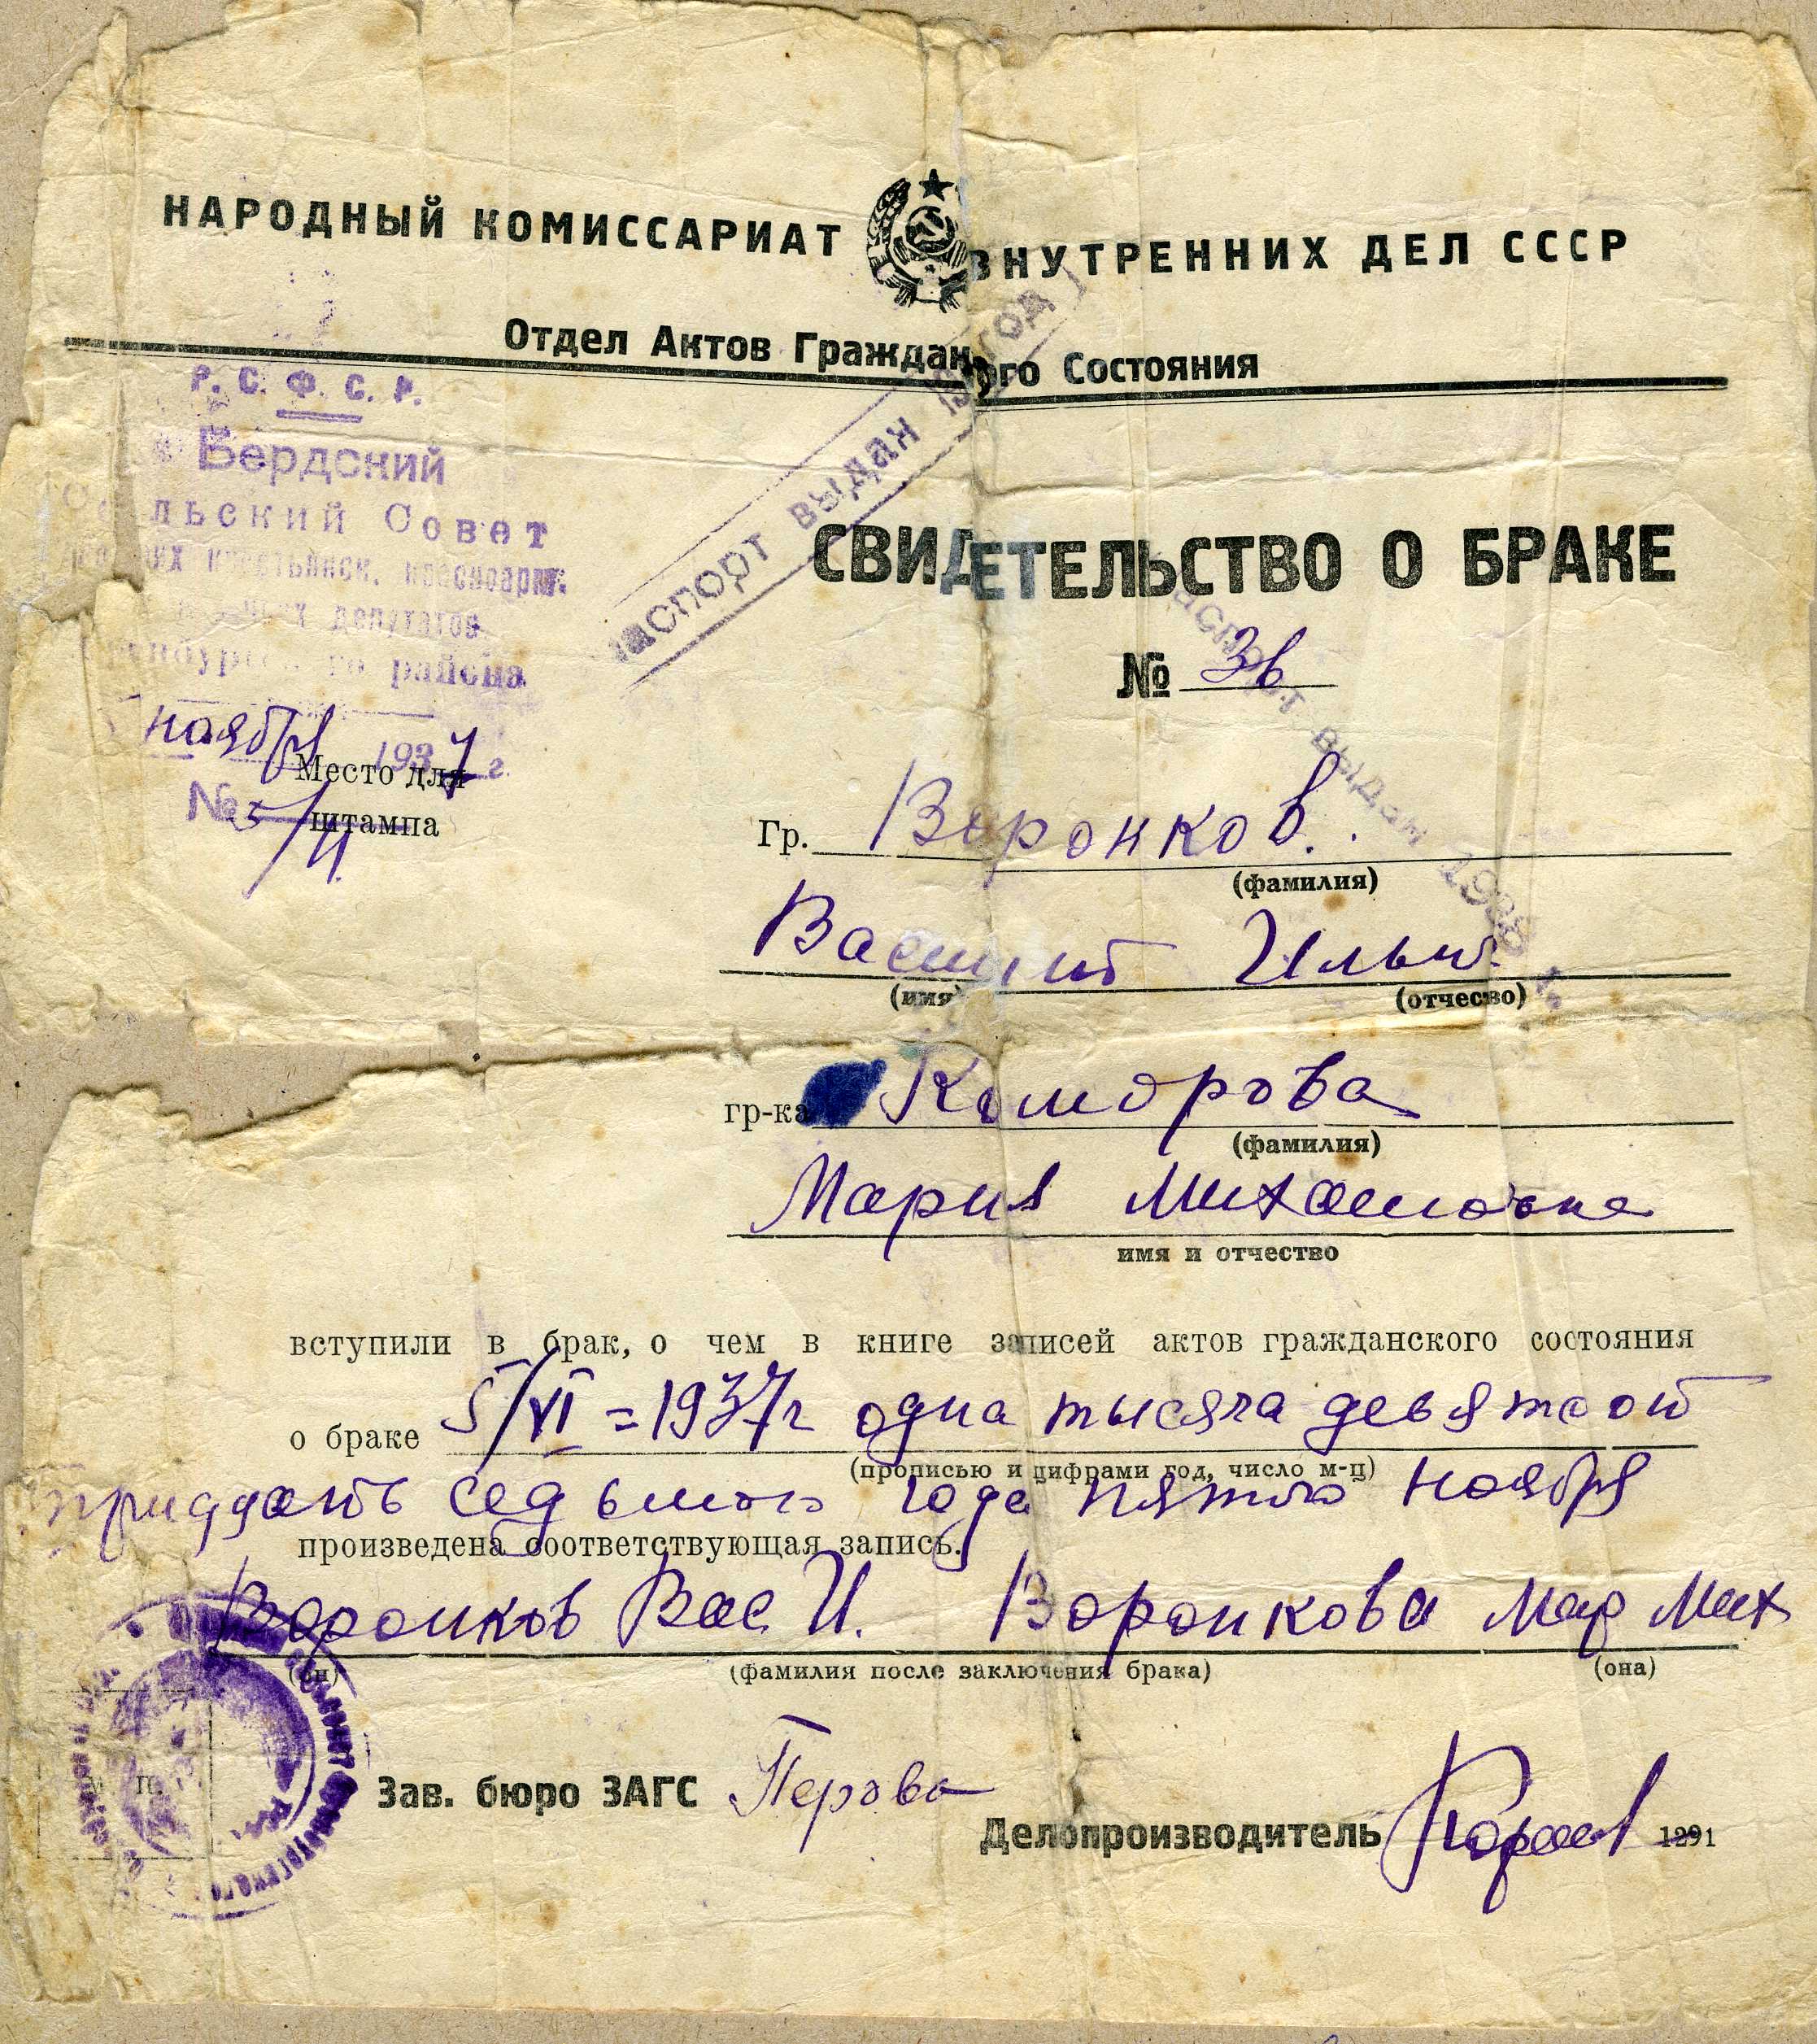 НАРОДНЫЙ КОМИССАРИАТ ВНУТРЕННИХ ДЕЛ СССР
Отдел Актов Гражданского Состояния
Р. С. Ф. С. Р.
Бердский
льский Совет
крестьянск. красноарм.
депутатов
района
ноября 1937 г.
№ 5/11
Место для
штампа
паспорт выдан
СВИДЕТЕЛЬСТВО О БРАКЕ
№ 36
паспорт выдан 1938 г.
Гр. Воронков.
(фамилия)
Василий Ильич
(имя) (отчество)
гр-ка Коморова
(фамилия)
Мария Михайловна
имя и отчество
вступили в брак, о чем в книге записей актов гражданского состояния
о браке 5/XI = 1937г одна тысяча девятсот
(прописью и цифрами год, число м-ц)
тридцать седьмого года пятого ноября
произведена соответствующая запись.
Воронков Вас. И. Воронкова Мар Мих
(он) (фамилия после заключения брака) (она)
п.
Зав. бюро ЗАГС Перова
Делопроизводитель
1291